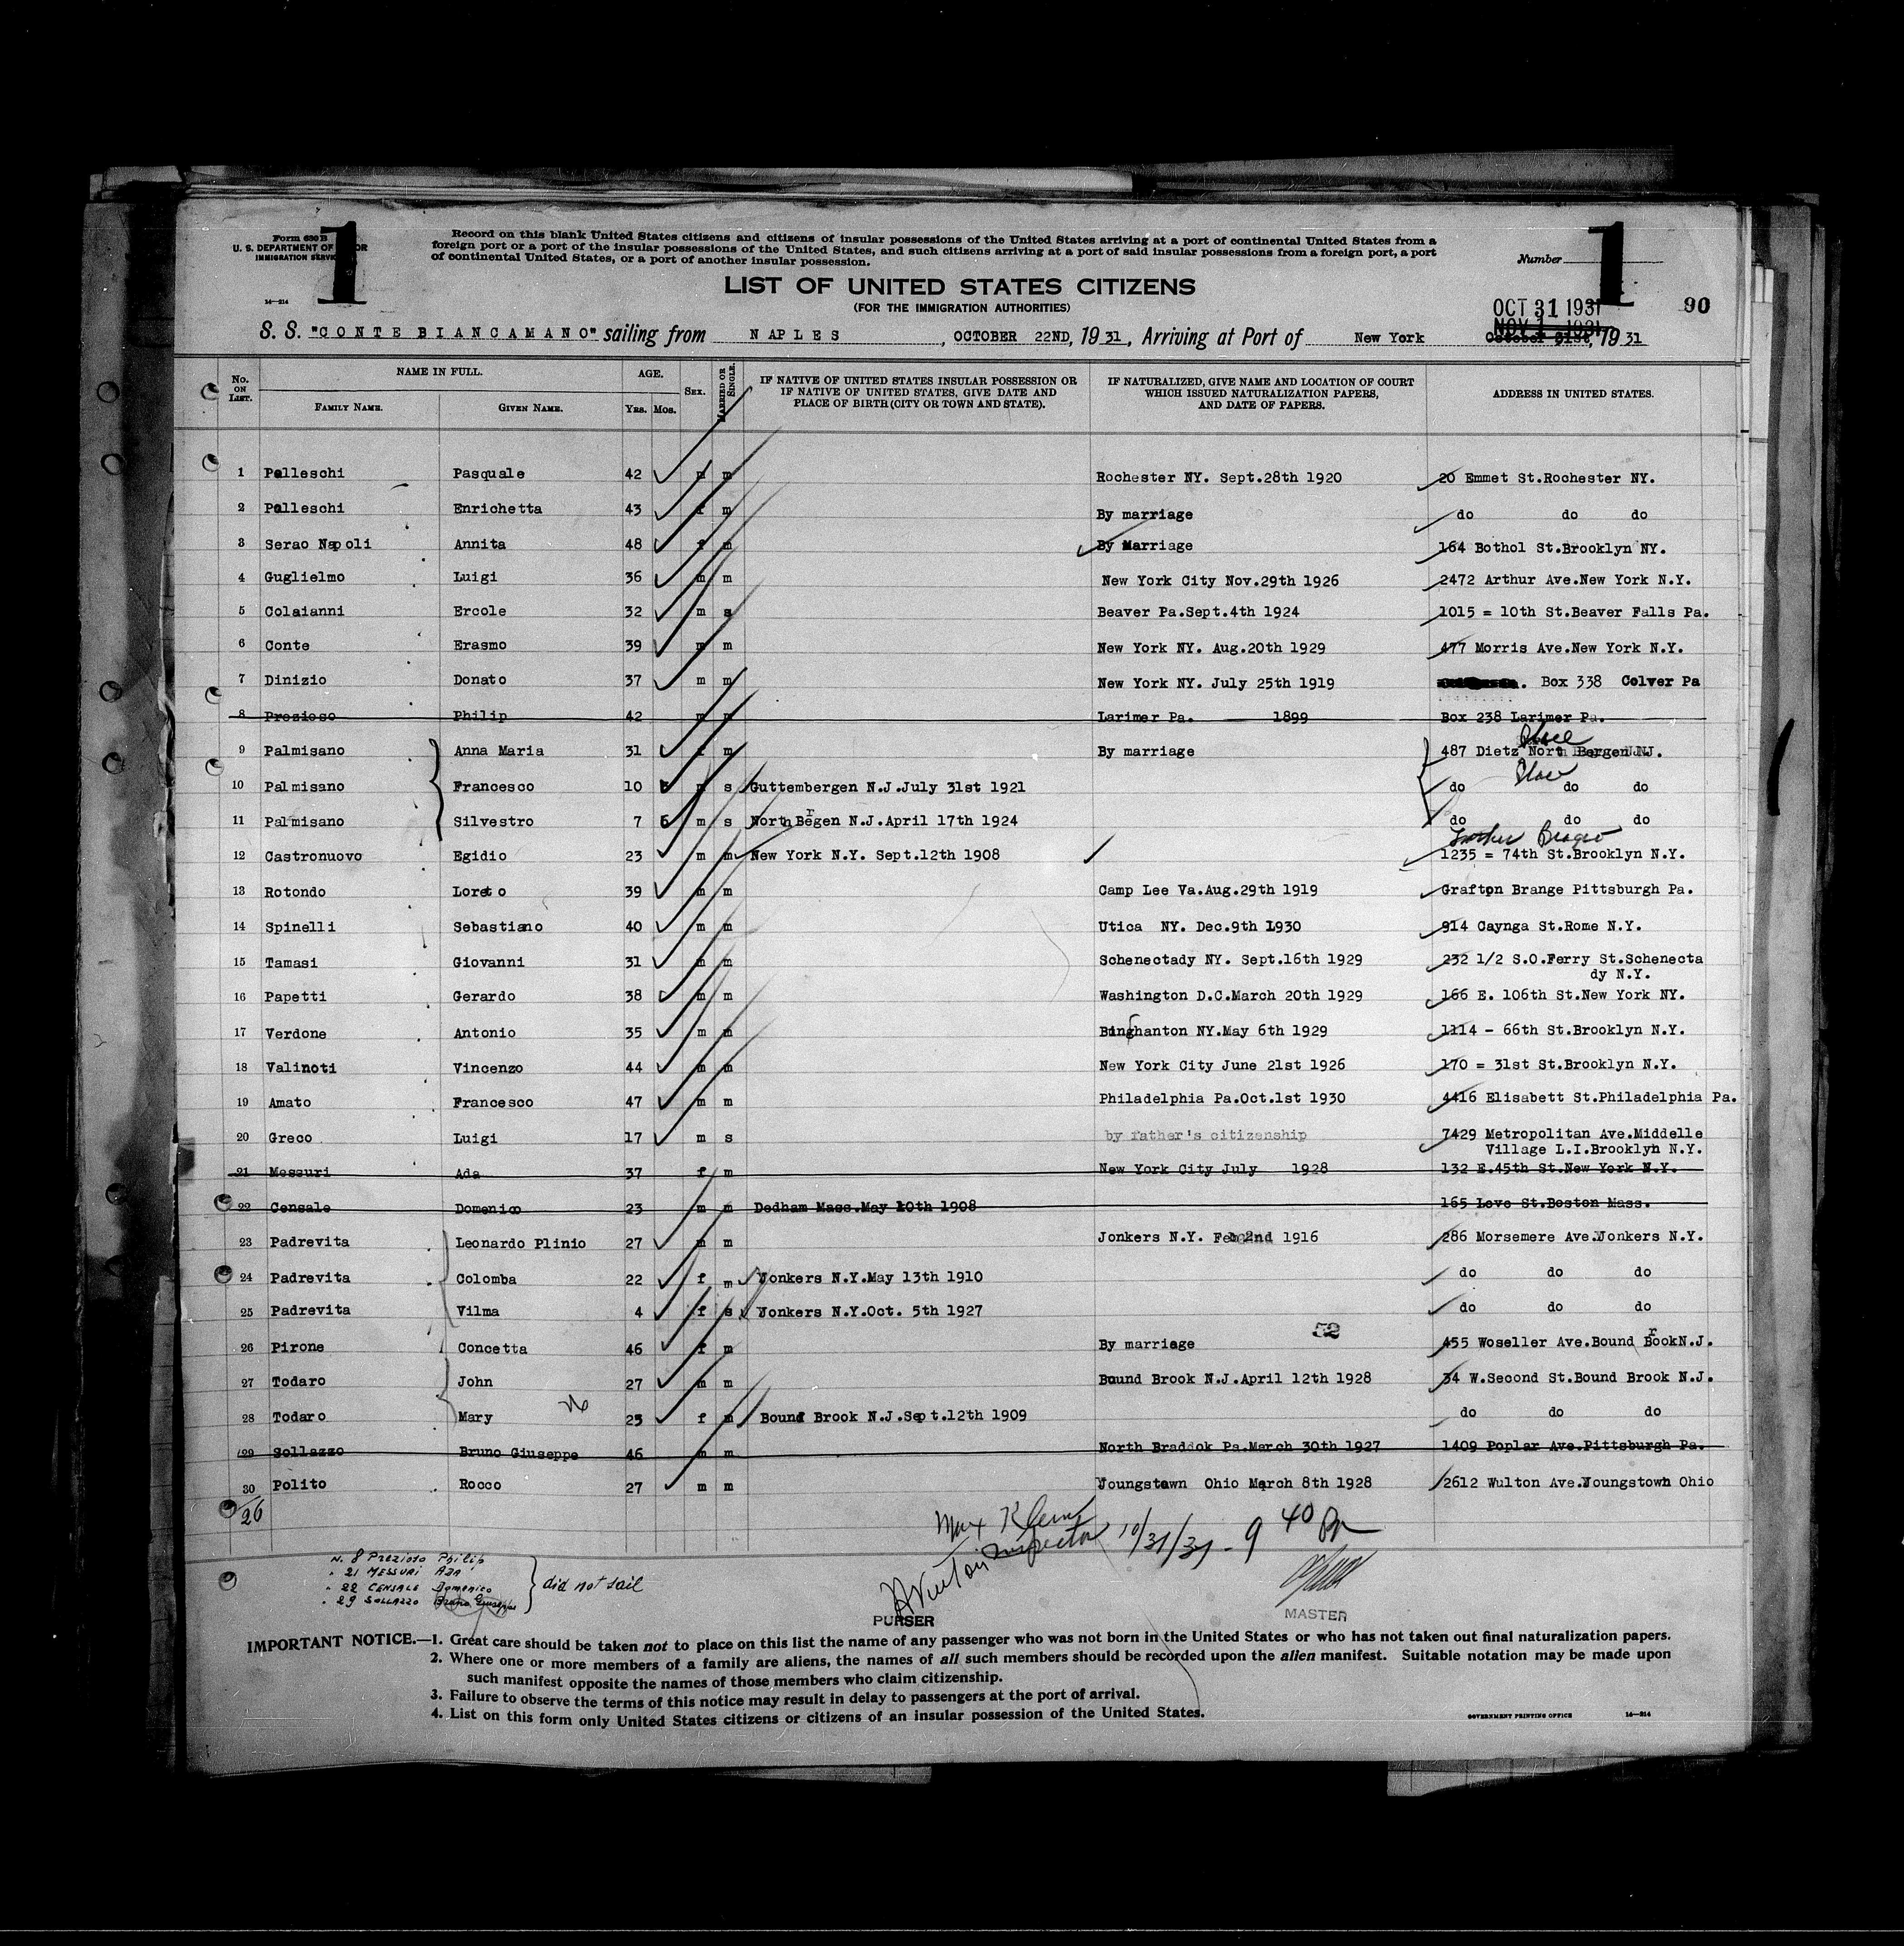 1
1
Form 630 B
U. S. DEPARTMENT OF LABOR
IMMIGRATION SERVICE
14—214
Record on this blank United States citizens and citizens of insular possessions of the United States arriving at a port of continental United States from a
foreign port or a port of the insular possessions of the United States, and such citizens arriving at a port of said insular possessions from a foreign port, a port
of continental United States, or a port of another insular possession.
Number
LIST OF UNITED STATES CITIZENS
(FOR THE IMMIGRATION AUTHORITIES)
OCT 31 1931
90
NOV 1 1931
S. S. "CONTE BIANCAMANO" sailing from NAPLES, OCTOBER 22ND, 1931, Arriving at Port of New York October 31st, 1931
No. ON LIST.
NAME IN FULL.
FAMILY NAME.
GIVEN NAME.
AGE.
YRS. MOS.
SEX.
MARRIED OR SINGLE.
IF NATIVE OF UNITED STATES INSULAR POSSESSION OR
IF NATIVE OF UNITED STATES, GIVE DATE AND
PLACE OF BIRTH (CITY OR TOWN AND STATE).
IF NATURALIZED, GIVE NAME AND LOCATION OF COURT
WHICH ISSUED NATURALIZATION PAPERS,
AND DATE OF PAPERS.
ADDRESS IN UNITED STATES.
1 Pelleschi Pasquale 42 m m Rochester NY. Sept.28th 1920 20 Emmet St.Rochester NY.
2 Pelleschi Enrichetta 43 f m By marriage do do do
3 Serao Napoli Annita 48 f m By Marriage 164 Bothol St.Brooklyn NY.
4 Guglielmo Luigi 36 m m New York City Nov.29th 1926 2472 Arthur Ave.New York N.Y.
5 Colaianni Ercole 32 m s Beaver Pa.Sept.4th 1924 1015 = 10th St.Beaver Falls Pa.
6 Conte Erasmo 39 m m New York NY. Aug.20th 1929 477 Morris Ave.New York N.Y.
7 Dinizio Donato 37 m m New York NY. July 25th 1919 Box 338 Colver Pa
8 Prezioso Philip 42 m m Larimer Pa. 1899 Box 238 Larimer Pa.
9 Palmisano Anna Maria 31 f m By marriage 487 Dietz Place North Bergen N.J.
10 Palmisano Francesco 10 m s Guttembergen N.J.July 31st 1921 do Place do do
11 Palmisano Silvestro 7 6 m s North Bergen N.J.April 17th 1924 do do do
12 Castronuovo Egidio 23 m m New York N.Y. Sept.12th 1908 1235 = 74th St.Brooklyn N.Y.
13 Rotondo Loreto 39 m m Camp Lee Va.Aug.29th 1919 Grafton Brange Pittsburgh Pa.
14 Spinelli Sebastiano 40 m m Utica NY. Dec.9th 1930 914 Caynga St.Rome N.Y.
15 Tamasi Giovanni 31 m m Schenectady NY. Sept.16th 1929 232 1/2 S.O.Ferry St.Schenecta
dy N.Y.
16 Papetti Gerardo 38 m m Washington D.C.March 20th 1929 166 E. 106th St.New York NY.
17 Verdone Antonio 35 m m Binghanton NY.May 6th 1929 1114 - 66th St.Brooklyn N.Y.
18 Valinoti Vincenzo 44 m m New York City June 21st 1926 170 = 31st St.Brooklyn N.Y.
19 Amato Francesco 47 m m Philadelphia Pa.Oct.1st 1930 4416 Elisabett St.Philadelphia Pa.
20 Greco Luigi 17 m s by father's citizenship 7429 Metropolitan Ave.Middelle
Village L.I.Brooklyn N.Y.
21 Messuri Ada 37 f m New York City July 1928 132 E.45th St.New York N.Y.
22 Censale Domenico 23 m m Dedham Mass.May 10th 1908 165 Love St.Boston Mass.
23 Padrevita Leonardo Plinio 27 m m Jonkers N.Y. Feb 2nd 1916 286 Morsemere Ave.Jonkers N.Y.
24 Padrevita Colomba 22 f m Jonkers N.Y.May 13th 1910 do do do
25 Padrevita Vilma 4 f s Jonkers N.Y.Oct. 5th 1927 do do do
52
26 Pirone Concetta 46 f m By marriage 455 Woseller Ave.Bound BrookN.J.
27 Todaro John 27 m m Bound Brook N.J.April 12th 1928 34 W.Second St.Bound Brook N.J.
28 Todaro Mary 23 f m Bound Brook N.J.Sept.12th 1909 do do do
29 Sollazzo Bruno Giuseppe 46 m m North Braddok Pa.March 30th 1927 1409 Poplar Ave.Pittsburgh Pa.
30 Polito Rocco 27 m m Joungstown Ohio March 8th 1928 2612 Wulton Ave.Joungstown Ohio
26
Max Klein
Inspector 10/31/31 - 9 40 Pm
N. 8 Prezioso Philip
" 21 MESSURI ADA
" 22 CENSALE Domenico
" 29 SOLLAZZO Bruno Giuseppe
did not sail
PURSER
MASTER
IMPORTANT NOTICE.—1. Great care should be taken not to place on this list the name of any passenger who was not born in the United States or who has not taken out final naturalization papers.
2. Where one or more members of a family are aliens, the names of all such members should be recorded upon the alien manifest. Suitable notation may be made upon
such manifest opposite the names of those members who claim citizenship.
3. Failure to observe the terms of this notice may result in delay to passengers at the port of arrival.
4. List on this form only United States citizens or citizens of an insular possession of the United States.
GOVERNMENT PRINTING OFFICE 14—214